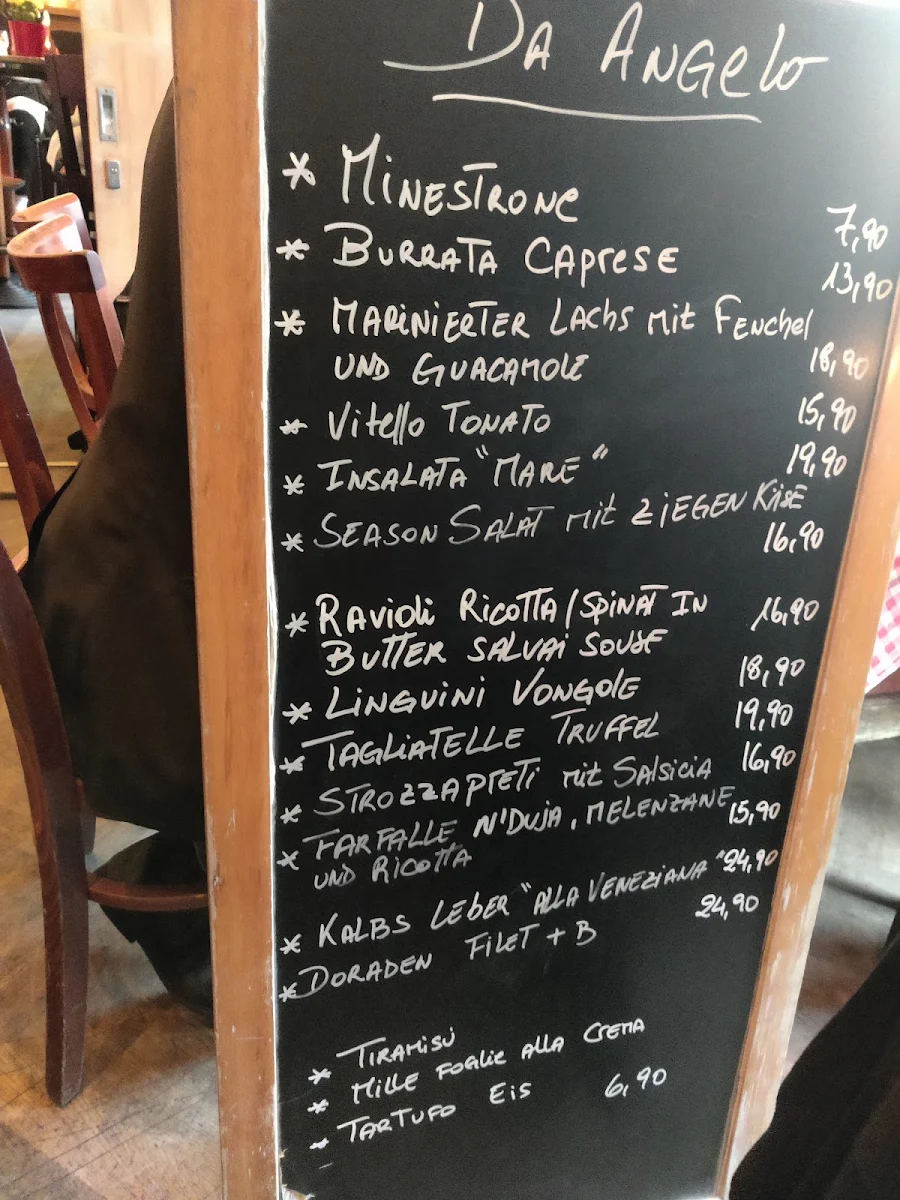 DA ANGELO
* MINESTRONE 7,90
* BURRATA CAPRESE 13,90
* MARINIERTER LACHS MIT FENCHEL
UND GUACAMOLE 18,90
* VITELLO TONATO 15,90
* INSALATA "MARE" 19,90
* SEASON SALAT MIT ZIEGEN KÄSE
16,90
* RAVIOLI RICOTTA/SPINAT IN 16,90
BUTTER SALVAI SOUSE
* LINGUINI VONGOLE 18,90
* TAGLIATELLE TRUFFEL 19,90
* STROZZAPRETI MIT SALSICIA 16,90
* FARFALLE N'DUJA, MELENZANE 15,90
UND RICOTTA
* KALBS LEBER "ALLA VENEZIANA" 24,90
* DORADEN FILET + B 24,90
* TIRAMISÙ
* MILLE FOGLIE ALLA CREMA
* TARTUFO EIS 6,90